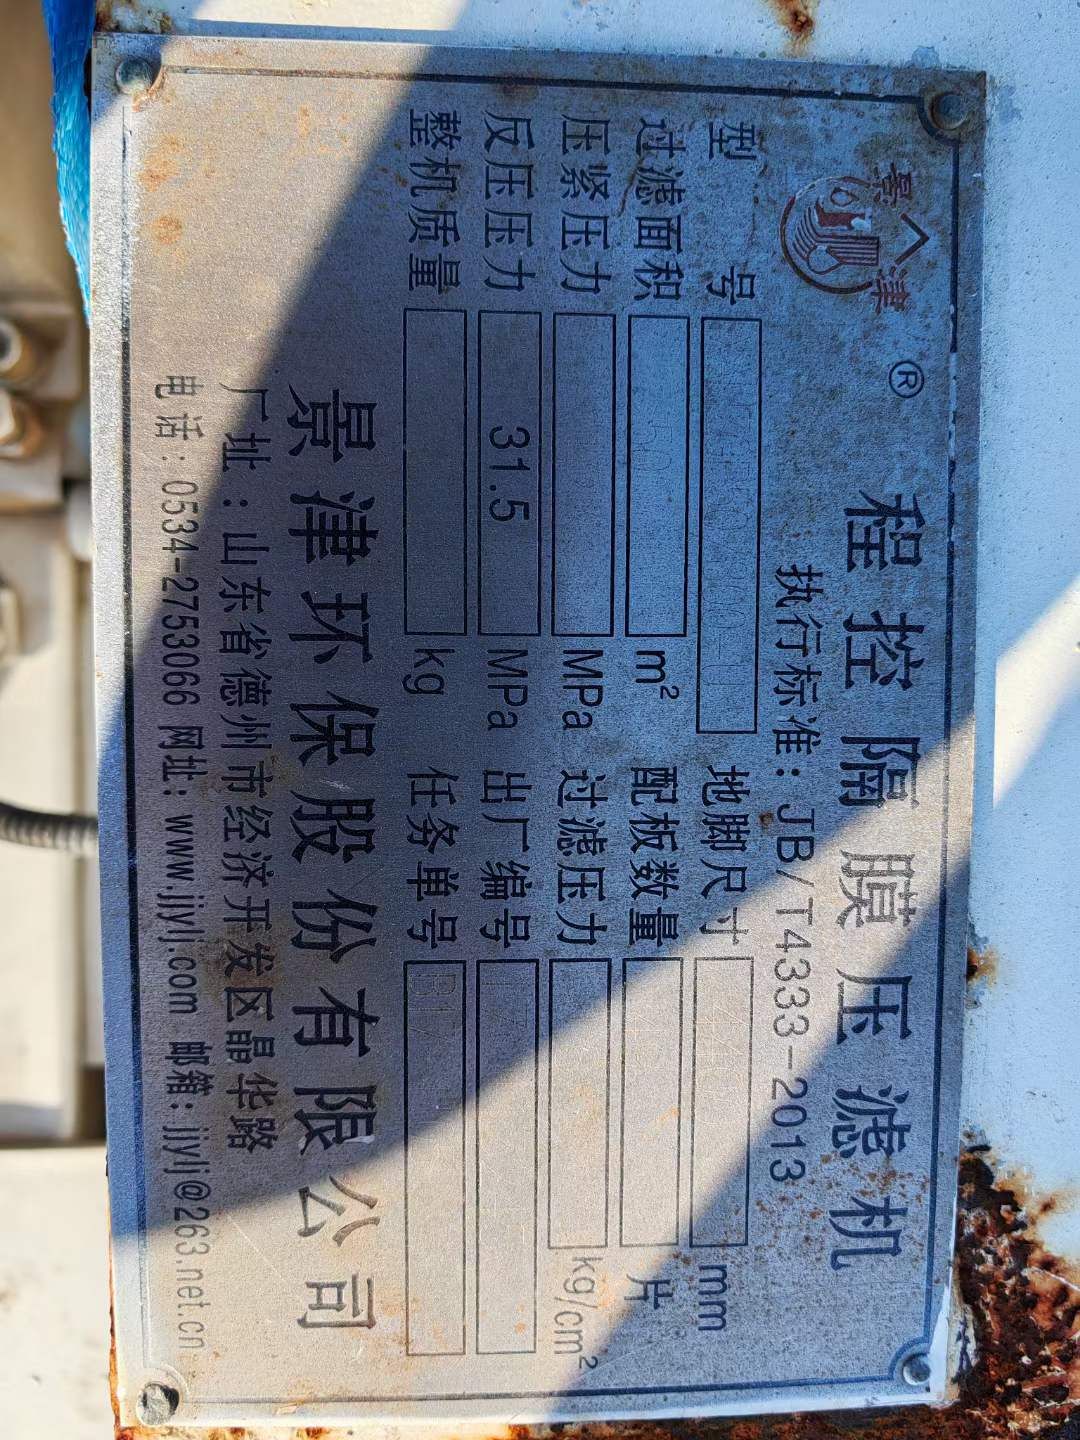 景津
®
程控隔膜压滤机
执行标准：JB/T4333-2013
型号 地脚尺寸 mm
过滤面积 m² 配板数量 片
压紧压力 MPa 过滤压力 kg/cm²
反压压力 31.5 MPa 出厂编号
整机质量 kg 任务单号
景津环保股份有限公司
厂址：山东省德州市经济开发区晶华路
电话：0534-2753066 网址：www.jjylj.com 邮箱：jjylj@263.net.cn